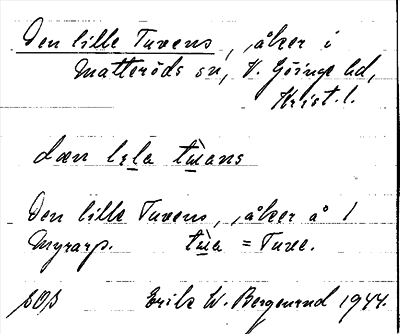 Den lille Tuvens, åker i
Matteröds sn, V. Göinge hd,
Krist. l.
dæn lɛla tʉ̀ans
Den lille Tuvens, åker å 1
Myrarp. tʉ̀a = Tuve.
Erik W. Bergenrud 1944.